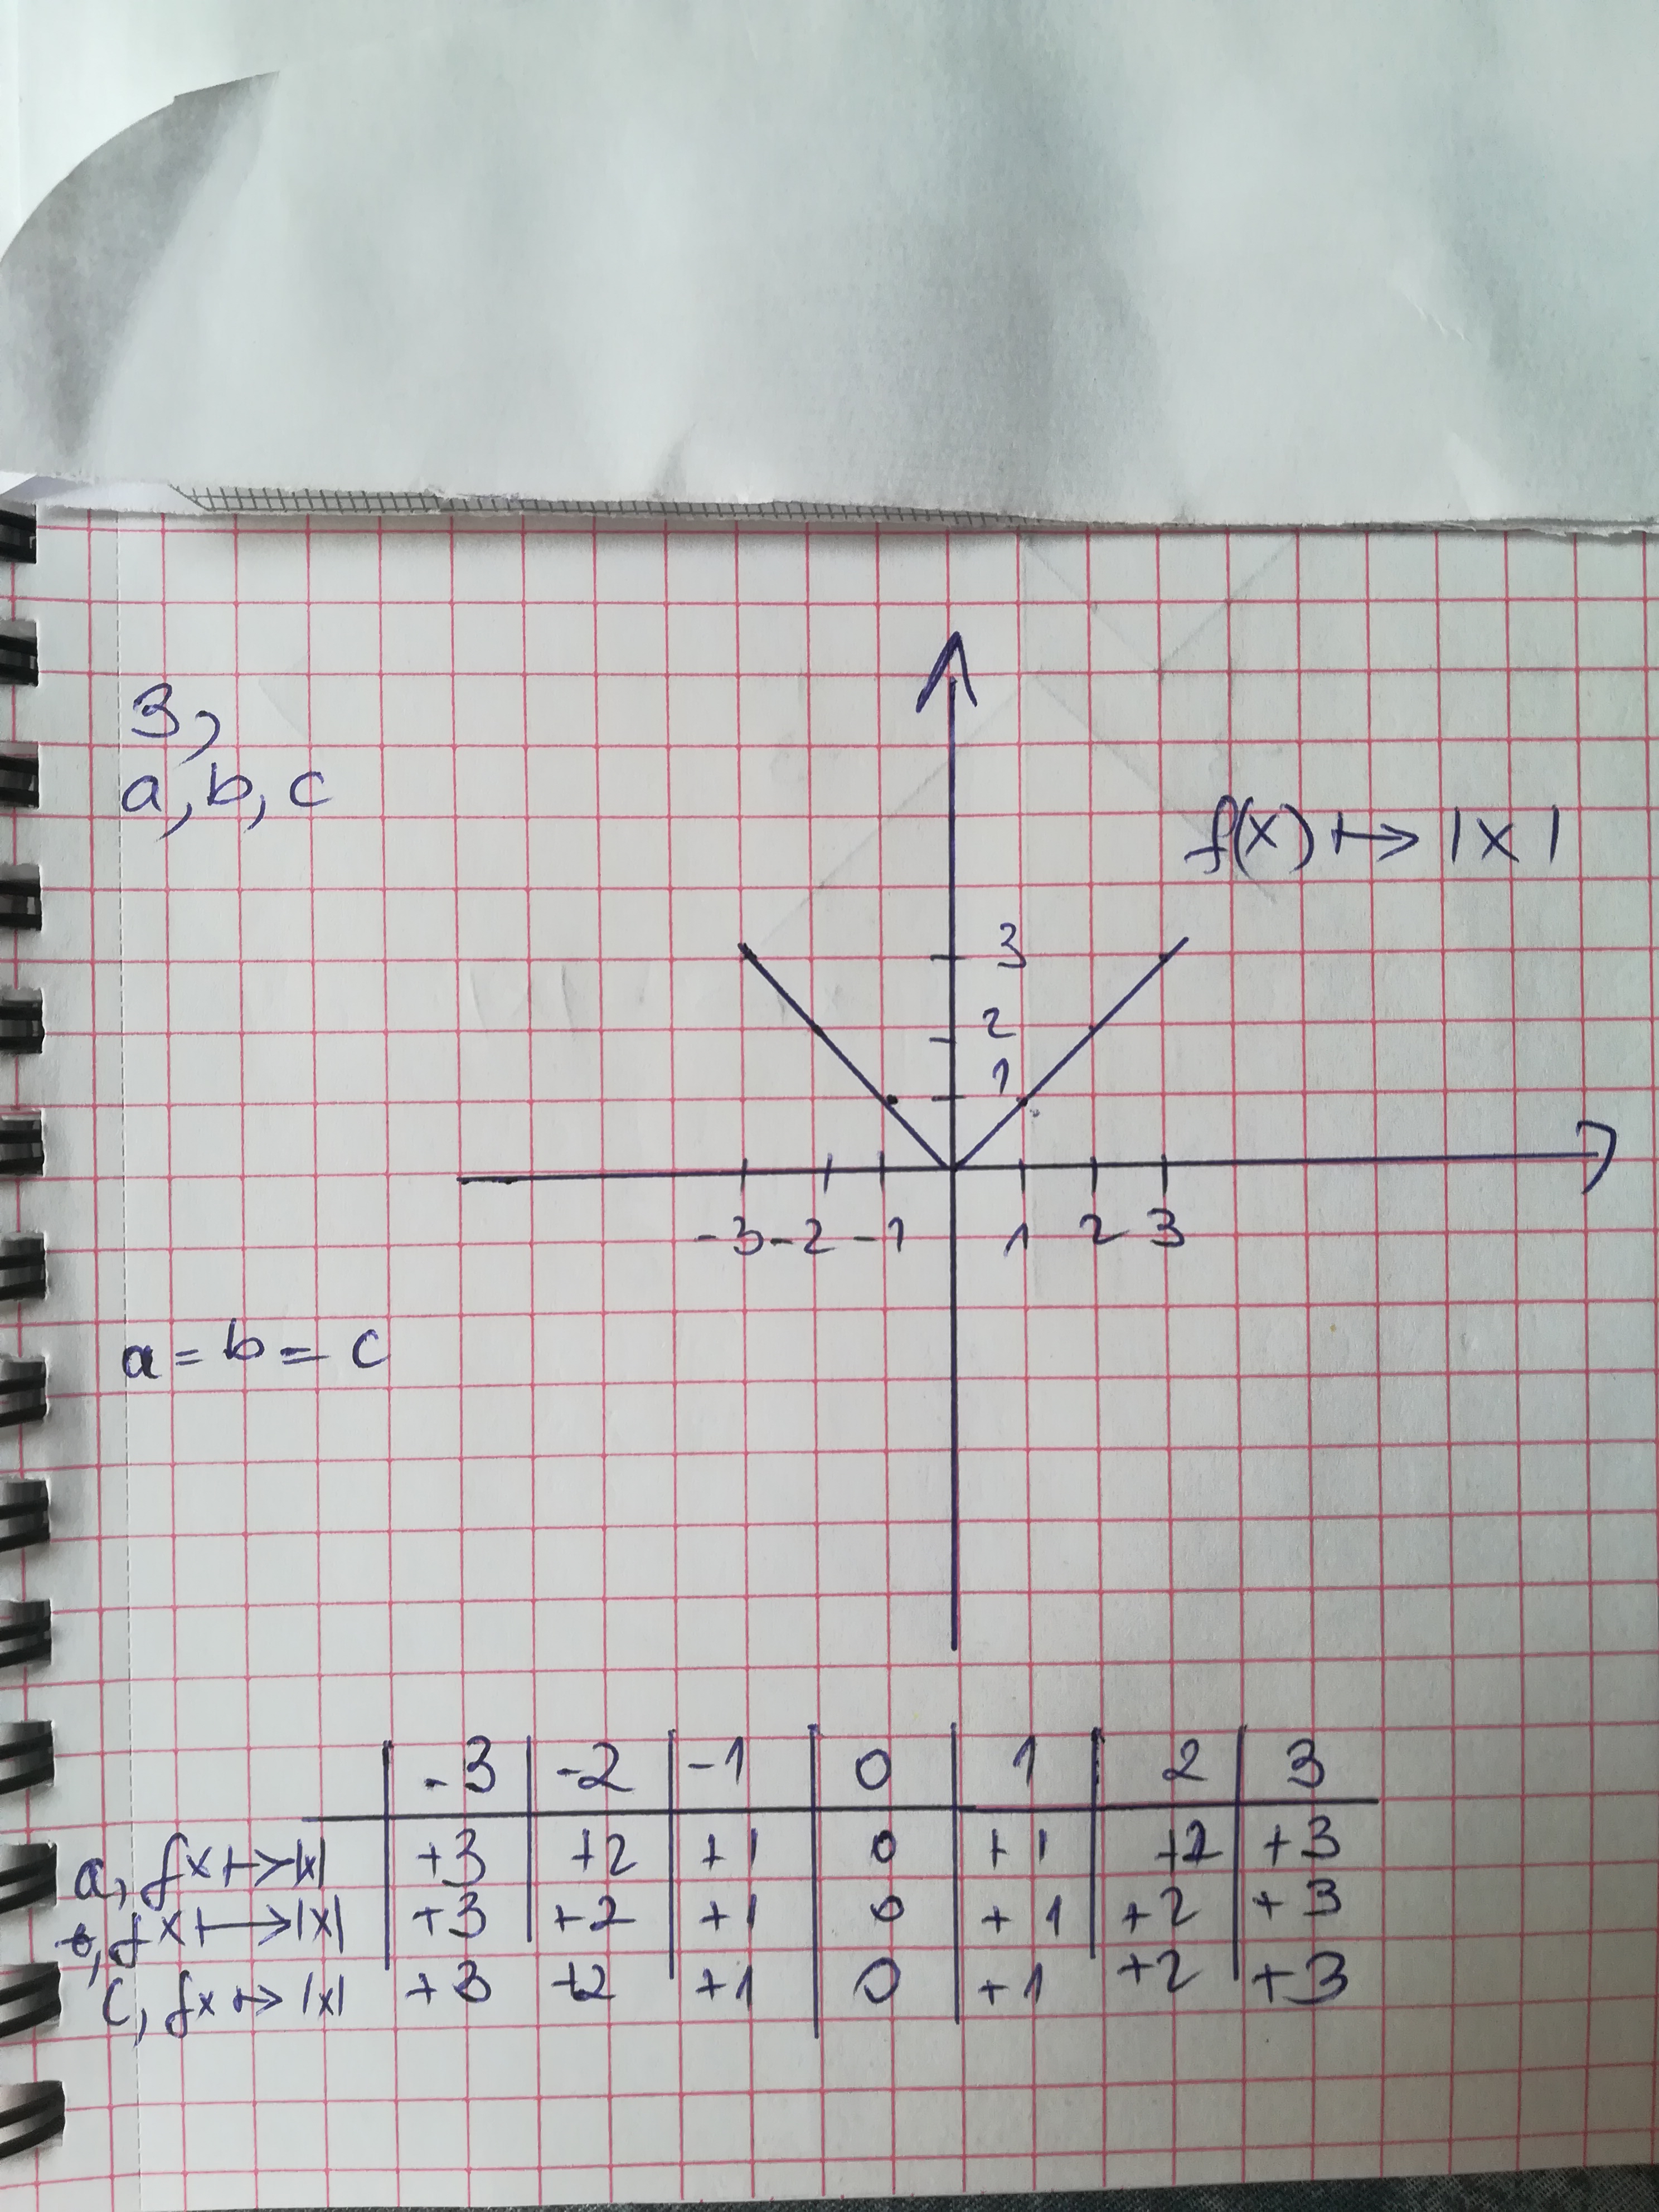 3,
a, b, c
f(x) ↦ |x|
3
2
1
-3 -2 -1 1 2 3
a = b = c
-3 -2 -1 0 1 2 3
a, f x ↦ |x| +3 +2 +1 0 +1 +2 +3
b, f x ↦ |x| +3 +2 +1 0 +1 +2 +3
c, f x ↦ |x| +3 +2 +1 0 +1 +2 +3